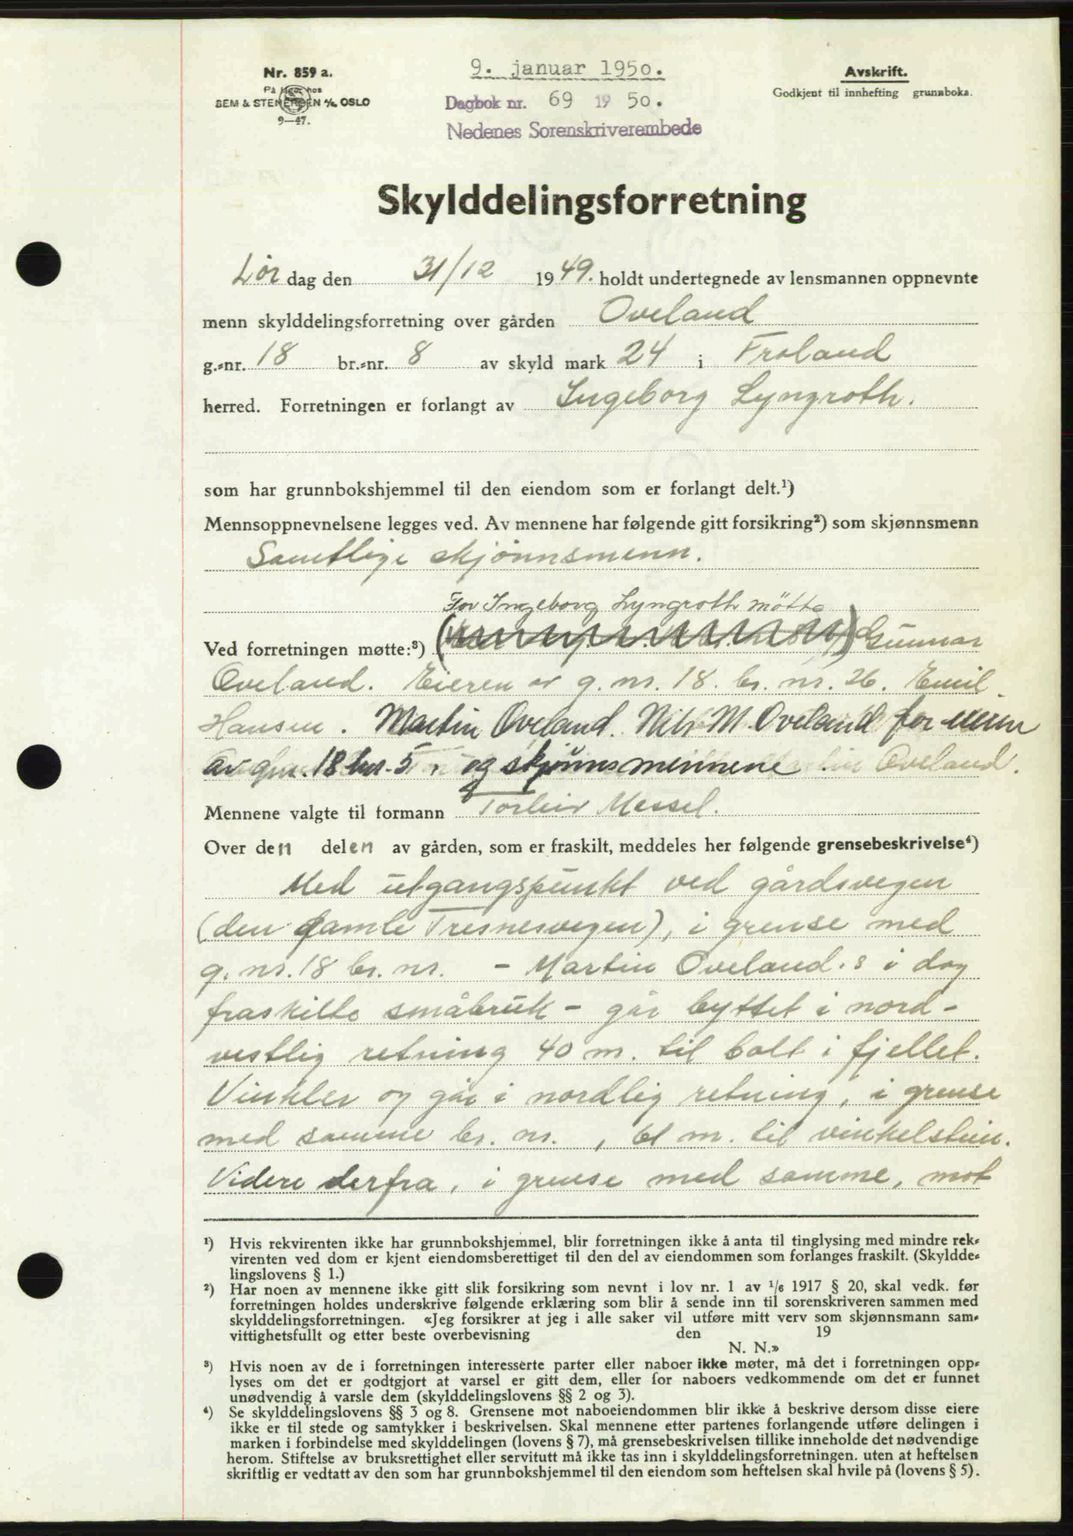 Nr. 859 a.
På lager hos
SEM & STENERSEN A/S OSLO
9—47.
9. januar 1950.
Dagbok nr. 69 19 50.
Nedenes Sorenskriverembede
Avskrift.
Godkjent til innhefting grunnboka.
Skylddelingsforretning
Lør dag den 31/12 1949. holdt undertegnede av lensmannen oppnevnte
menn skylddelingsforretning over gården Oveland
g.-nr. 18 br.-nr. 8 av skyld mark 24 i Froland
herred. Forretningen er forlangt av Ingeborg Lyngroth.
som har grunnbokshjemmel til den eiendom som er forlangt delt.¹)
Mennsoppnevnelsene legges ved. Av mennene har følgende gitt forsikring²) som skjønnsmenn
Samtlige skjønnsmenn.
For Ingeborg Lyngroth møtte
Ved forretningen møtte:³) Gunnar
Oveland. Eieren av g. nr. 18. br. nr. 26. Emil
Hansen. Martin Oveland. Nils M. Oveland for
av gnr. 18 bnr. 5, og skjønnsmennene Oveland.
Mennene valgte til formann Torleiv Messel.
Over den delen av gården, som er fraskilt, meddeles her følgende grensebeskrivelse⁴)
Med utgangspunkt ved gårdsvegen
(den gamle Tresnesvegen), i grense med
g. nr. 18 br. nr. - Martin Oveland.s i dag
fraskilte småbruk - går byttet i nord-
vestlig retning 40 m. til bolt i fjellet.
Vinkler og går i nordlig retning, i grense
med samme br. nr. , 61 m. til vinkelstein.
Videre derfra, i grense med samme, mot
¹) Hvis rekvirenten ikke har grunnbokshjemmel, blir forretningen ikke å anta til tinglysing med mindre rek-
virenten ved dom er kjent eiendomsberettiget til den del av eiendommen som forlanges fraskilt. (Skyldde-
lingslovens § 1.)
²) Har noen av mennene ikke gitt slik forsikring som nevnt i lov nr. 1 av ¹/₆ 1917 § 20, skal vedk. før
forretningen holdes underskrive følgende erklæring som blir å sende inn til sorenskriveren sammen med
skylddelingsforretningen. «Jeg forsikrer at jeg i alle saker vil utføre mitt verv som skjønnsmann sam-
vittighetsfullt og etter beste overbevisning den 19
N. N.»
³) Hvis noen av de i forretningen interesserte parter eller naboer ikke møter, må det i forretningen opp-
lyses om det er godtgjort at varsel er gitt dem, eller for naboers vedkommende om det er funnet
unødvendig å varsle dem (skylddelingslovens §§ 2 og 3).
⁴) Se skylddelingslovens §§ 3 og 8. Grensene mot naboeiendommen blir ikke å beskrive dersom disse eiere
ikke er til stede og samtykker i beskrivelsen. Skal mennene etter partenes forlangende utføre delingen i
marken i forbindelse med skylddelingen (lovens § 7), må grensebeskrivelsen tillike inneholde det nødvendige
herom. Stiftelse av bruksrettighet eller servitutt må ikke tas inn i skylddelingsforretningen. uten at heftelsen
skriftlig er vedtatt av den som har grunnbokshjemmel til den eiendom som heftelsen skal hvile på (lovens § 5).